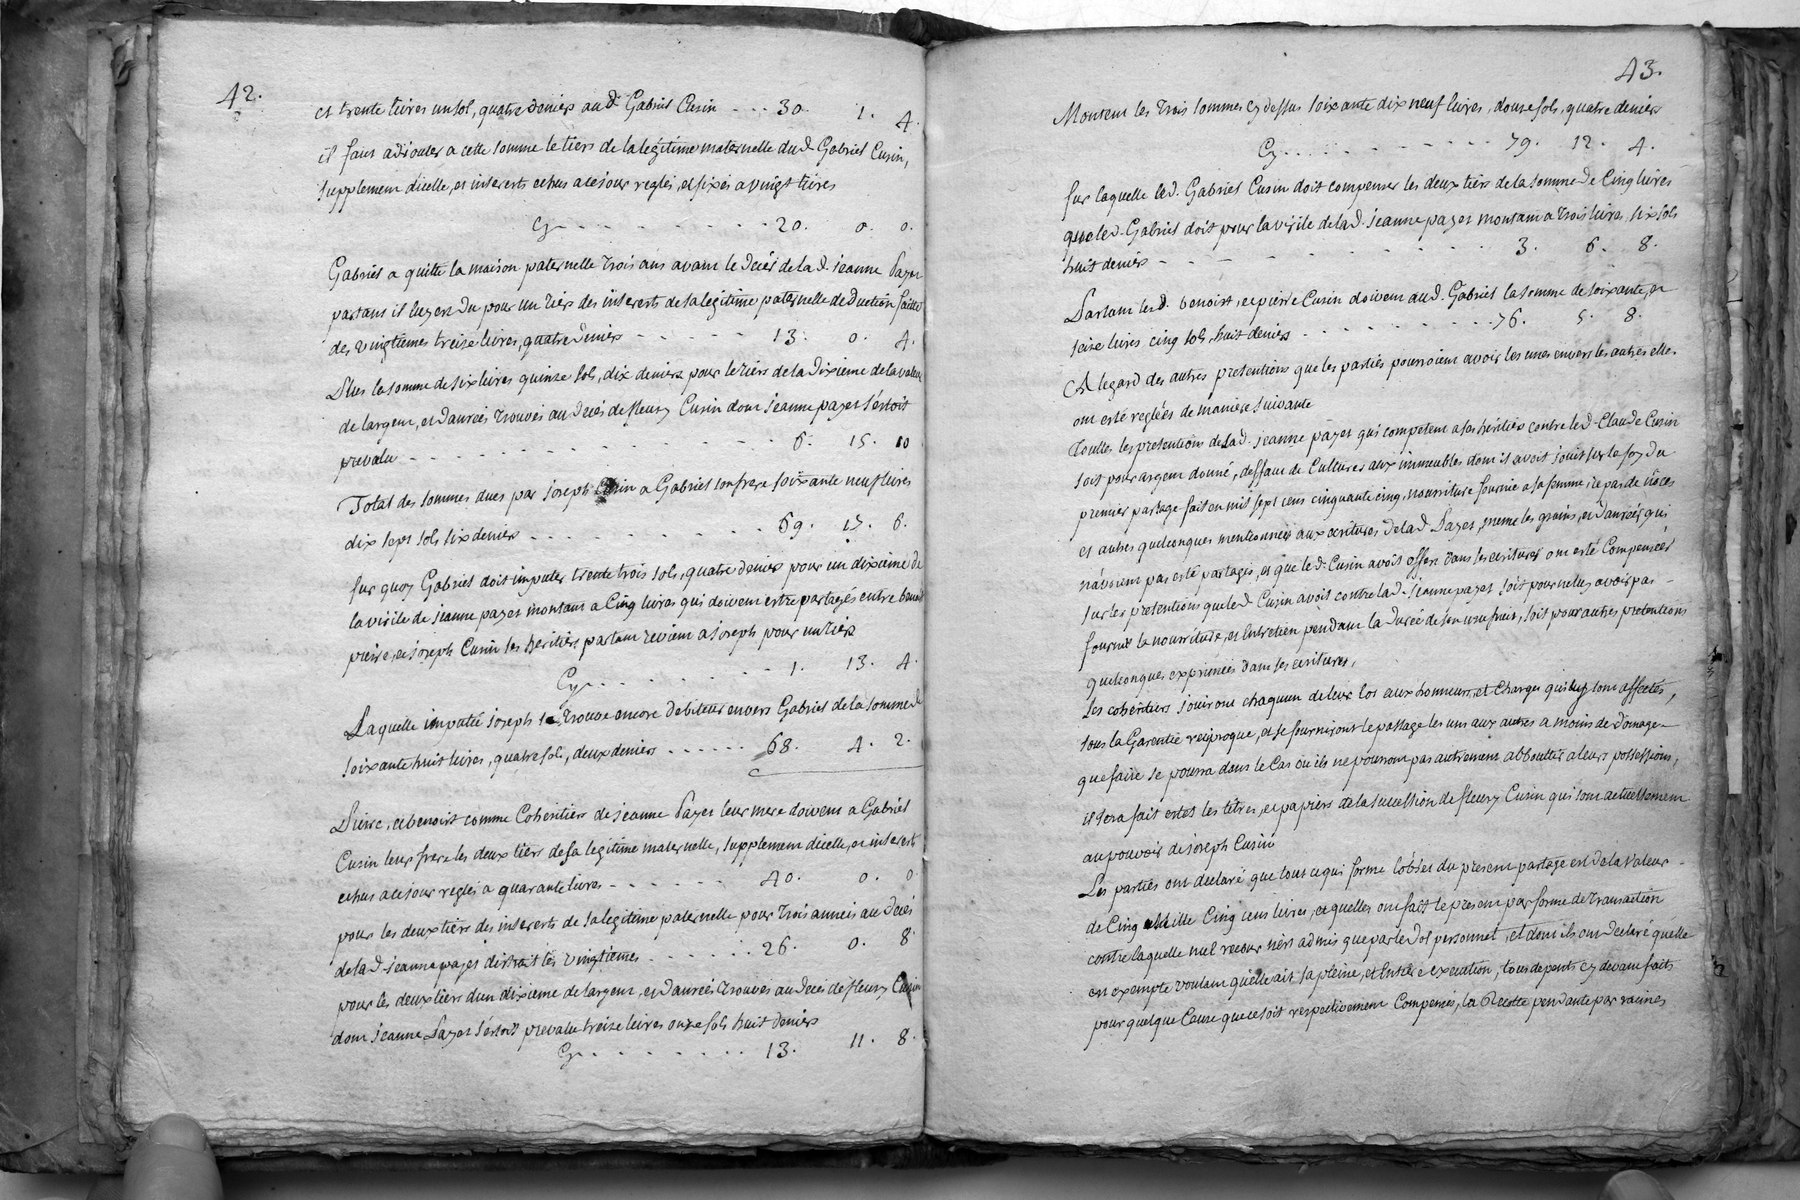 42.
et trente livres un sol, quatre deniers au d. Gabriel Cusin - - - 30. 1. 4.
il faut adjouter a cette somme le tiers de la legitime maternelle dud. Gabriel Cusin,
supplement dicelle, et interests echus a ce jour reglés, et fixés a vingt livres
Cy - - - - - - - 20. 0. 0.
Gabriel a quitté la maison paternelle trois ans avant le decés de la d. jeanne Payet
partant il luy est du pour un tiers des interests de sa legitime paternelle deduction faitte
des vingtiemes treize livres, quatre deniers - - - - - - 13. 0. 4.
Plus la somme de six livres quinze sols, dix deniers pour le tiers de la dixieme de la valeur
de largent, et danrées trouvés au decés de fleury Cusin dont jeanne payet s'estoit
prevalu - - - - - - - - - - - 6. 15. 10
Total des sommes dues par joseph Cusin a Gabriel son frere soixante neuf livres
dix sept sols six deniers - - - - - - - - 69. 17. 6.
sur quoy Gabriel doit imputer trente trois sols, quatre deniers pour un dixieme de
la virile de jeanne payet montant a Cinq livres qui doivent estre partagés entre benoit
pierre, et joseph Cusin ses heritiers partant revient a joseph pour un tiers
Cy - - - - - - - - 1. 13. 4.
Laquelle imputée joseph se trouve encore debiteur envers Gabriel de la somme de
soixante huit livres, quatre sols, deux deniers - - - - - - 68. 4. 2.
Pierre, et benoist comme Coheritiers de jeanne Payet leur mere doivent a Gabriel
Cusin leur frere les deux tiers de sa legitime maternelle, supplement dicelle, et interests
echus a ce jour reglés a quarante livres - - - - - - 40. 0. 0
pour les deux tiers des interests de sa legitime paternelle pour trois années au decés
de la d. jeanne payet distrait les vingtiemes - - - - - - 26. 0. 8.
pour les deux tiers dun dixieme de largent, et danrées trouvés au decés de fleury Cusin
dont jeanne Payet s'estoit prevalu treize livres onze sols huit deniers
Cy - - - - - - - - 13. 11. 8.
43.
Montent les trois sommes cy dessus soixante dix neuf livres, douze sols, quatre deniers
Cy - - - - - - - - - - - 79. 12. 4.
sur laquelle led. Gabriel Cusin doit compenser les deux tiers de la somme de Cinq livres
que led. Gabriel doit pour la virile de la d. jeanne payet montant a trois livres, six sols
huit deniers - - - - - - - - - - 3. 6. 8.
Partant les d. benoist, et pierre Cusin doivent au d. Gabriel la somme de soixante, et
seize livres cinq sols, huit deniers - - - - - - - - - 76. 5. 8.
A legard des autres pretentions que les parties pourroient avoir les unes envers les autres elles
ont esté reglées de maniere suivante
Toutes les pretentions de la d. jeanne payet qui competent a ses heritiers contre le d. Claude Cusin
soit pour argent donné, deffaut de Cultures aux immeubles dont il avoit jouit sur la foy du
premier partage fait en mil sept cens cinquante cinq, nourriture fournie a sa femme, repas de nôces
et autres quelconques mentionnées aux ecritures de la d. Payet, meme les grains, et danrées qui
n'avoient pas esté partagés, et que le d. Cusin avoit offert dans ses ecritures ont esté Compensées
sur les pretentions que led. Cusin avoit contre la d. jeanne payet soit pour ne luy avoir pas -
fournit la nourriture, et Entretien pendant la durée de son usufruit, soit pour autres pretentions
quelconques exprimées dans ses ecritures,
Les coheritiers jouiront chaqu'un de leur lot aux honneurs, et Charges qui luy sont affectés,
sous la Garentie reciproque, et se fourniront le passage les uns aux autres a moins de dômage
que faire se pourra dans le Cas où ils ne pourront pas autrement abboutir a leurs possessions,
il sera fait estat les titres, et papiers de la succession de fleury Cusin qui sont actuellement
au pouvoir de joseph Cusin
Les parties ont declaré que tout ce qui forme lobjet du present partage est de la valeur -
de Cinq Mille Cinq cens livres, et quelles ont fait le present par forme de transaction
contre laquelle nul recour n'est admis que par le dol personnel, et dont ils ont declaré quelle
en exempte voulant quelle ait sa pleine, et Entiere execution, tous depents cy devant faits
pour quelque Cause que ce soit respectivement Compensés, la Recolte pendante par racines